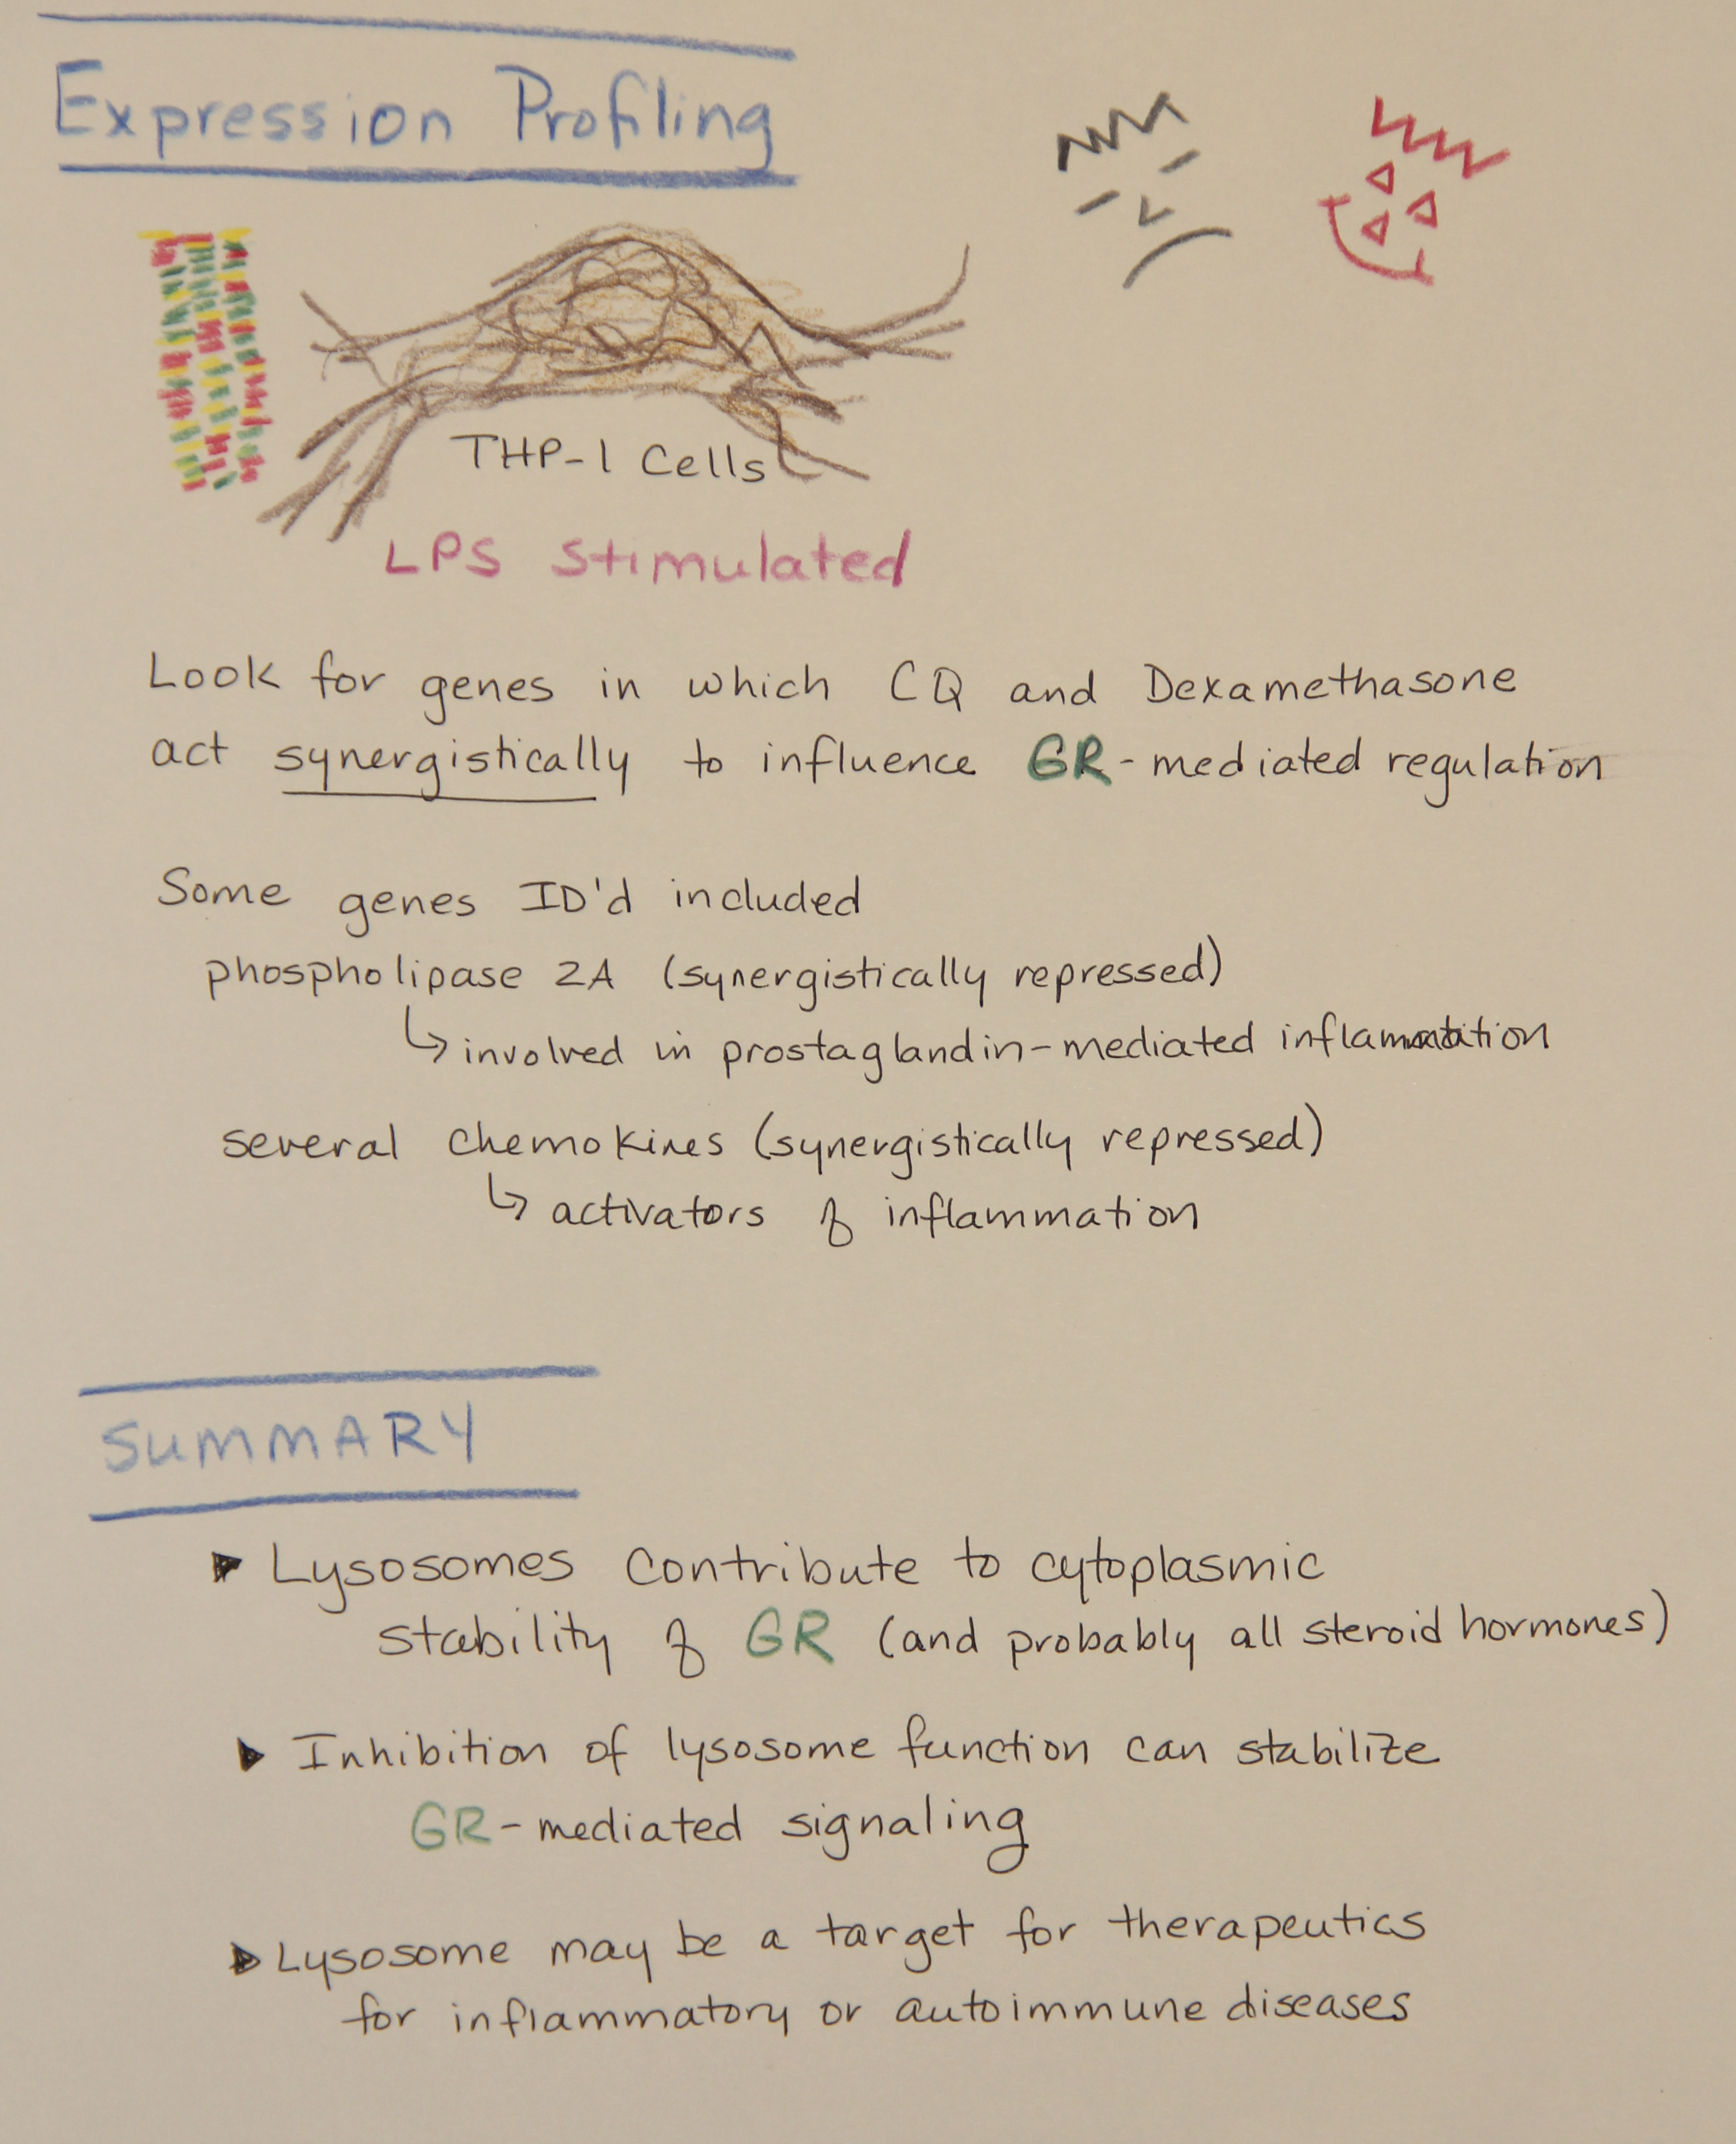 Expression Profiling
THP-1 Cells
LPS stimulated
Look for genes in which CQ and Dexamethasone
act synergistically to influence GR-mediated regulation
Some genes ID'd included
phospholipase 2A (synergistically repressed)
↳ involved in prostaglandin-mediated inflammation
several chemokines (synergistically repressed)
↳ activators of inflammation
SUMMARY
▶ Lysosomes contribute to cytoplasmic
stability of GR (and probably all steroid hormones)
▶ Inhibition of lysosome function can stabilize
GR-mediated signaling
▶ Lysosome may be a target for therapeutics
for inflammatory or autoimmune diseases